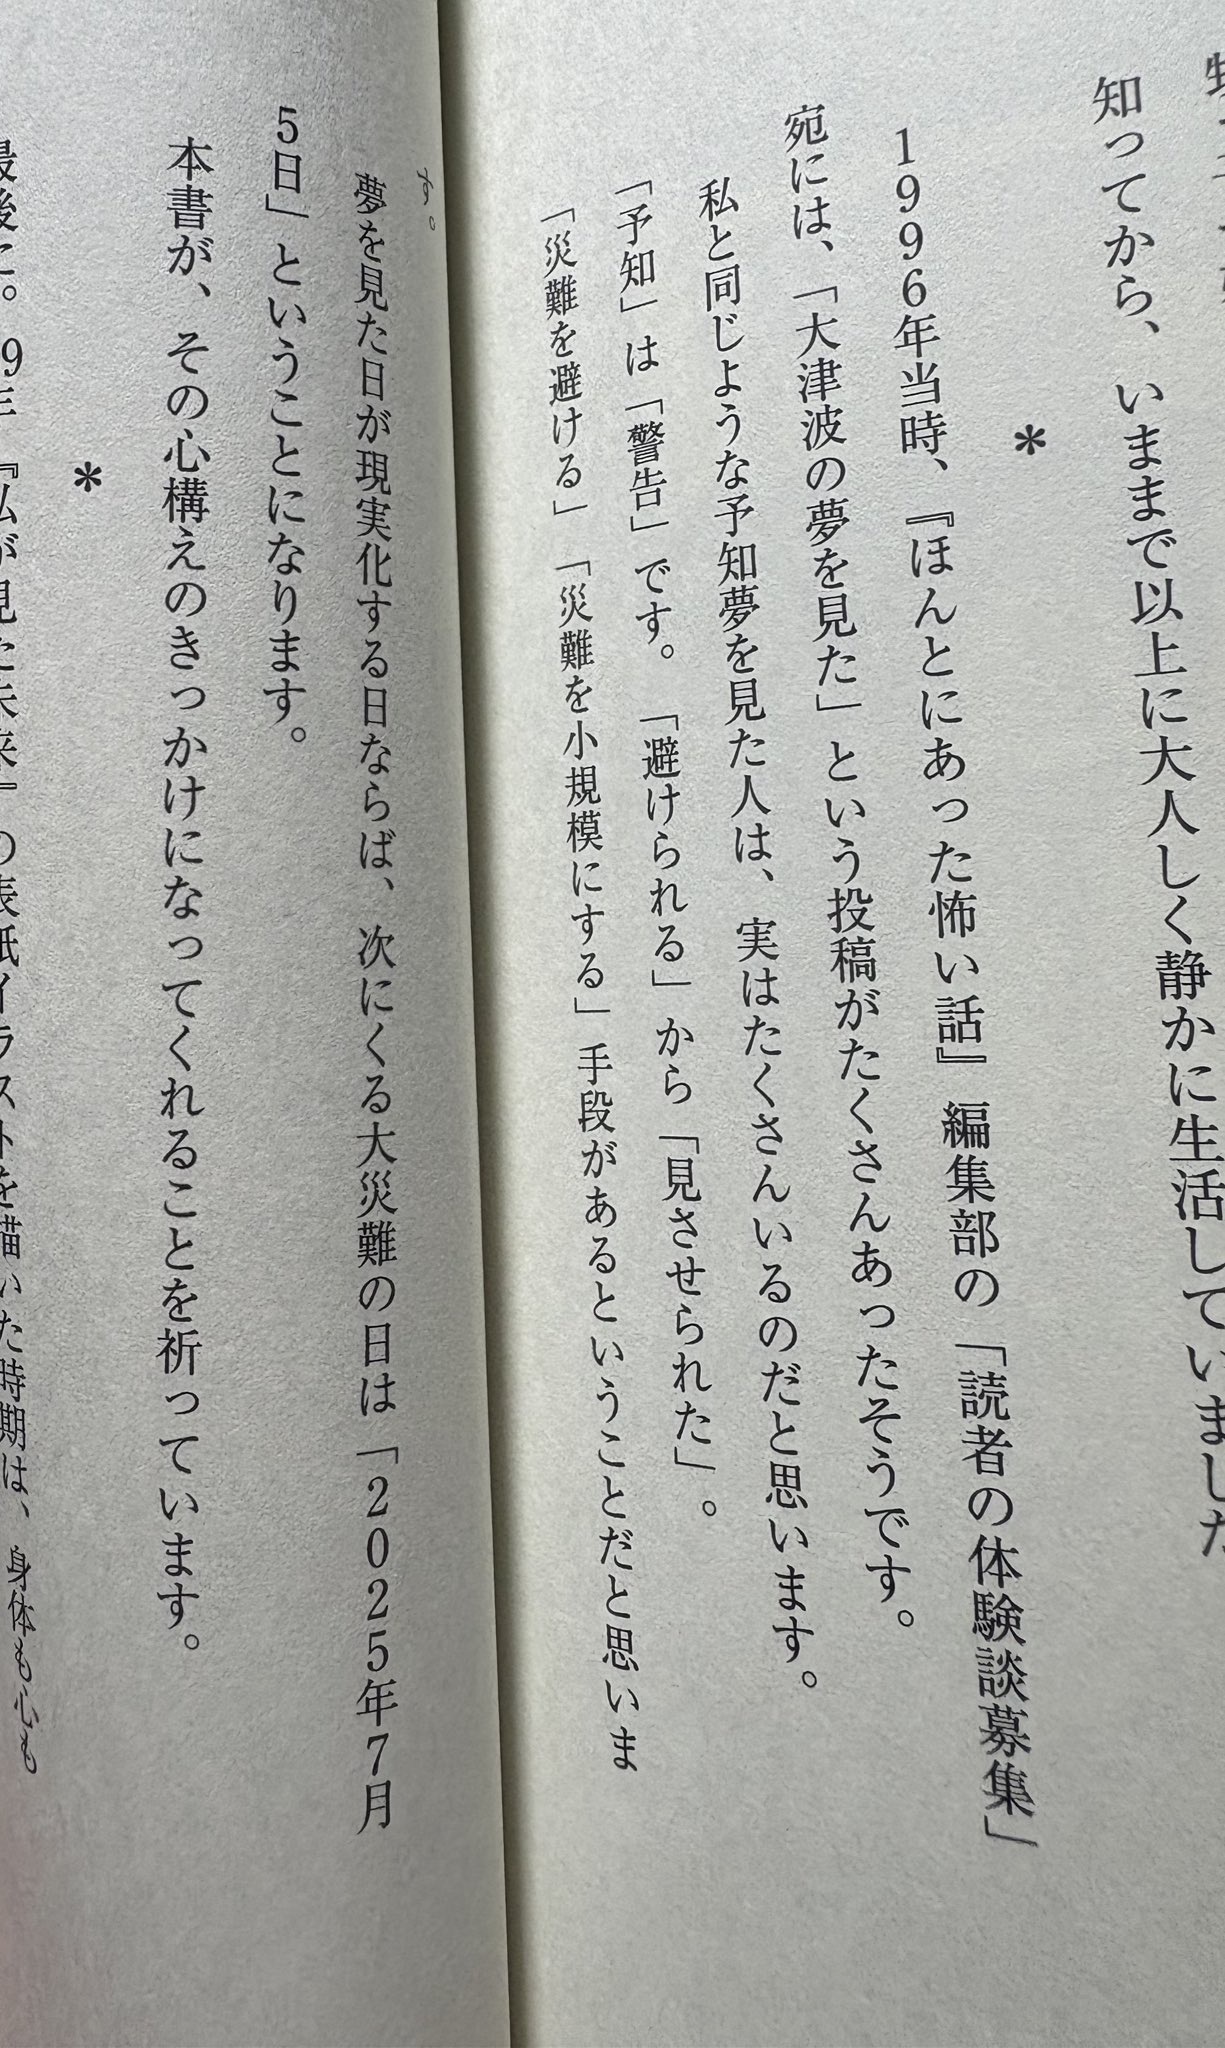 知ってから、いままで以上に大人しく静かに生活していました
＊
1996年当時、『ほんとにあった怖い話』編集部の「読者の体験談募集」
宛には、「大津波の夢を見た」という投稿がたくさんあったそうです。
私と同じような予知夢を見た人は、実はたくさんいるのだと思います。
「予知」は「警告」です。「避けられる」から「見させられた」。
「災難を避ける」「災難を小規模にする」手段があるということだと思いま
す。
夢を見た日が現実化する日ならば、次にくる大災難の日は「2025年7月
5日」ということになります。
本書が、その心構えのきっかけになってくれることを祈っています。
＊
最後に。99年『私が見た未来』の表紙イラストを描いた時期は、身体も心も